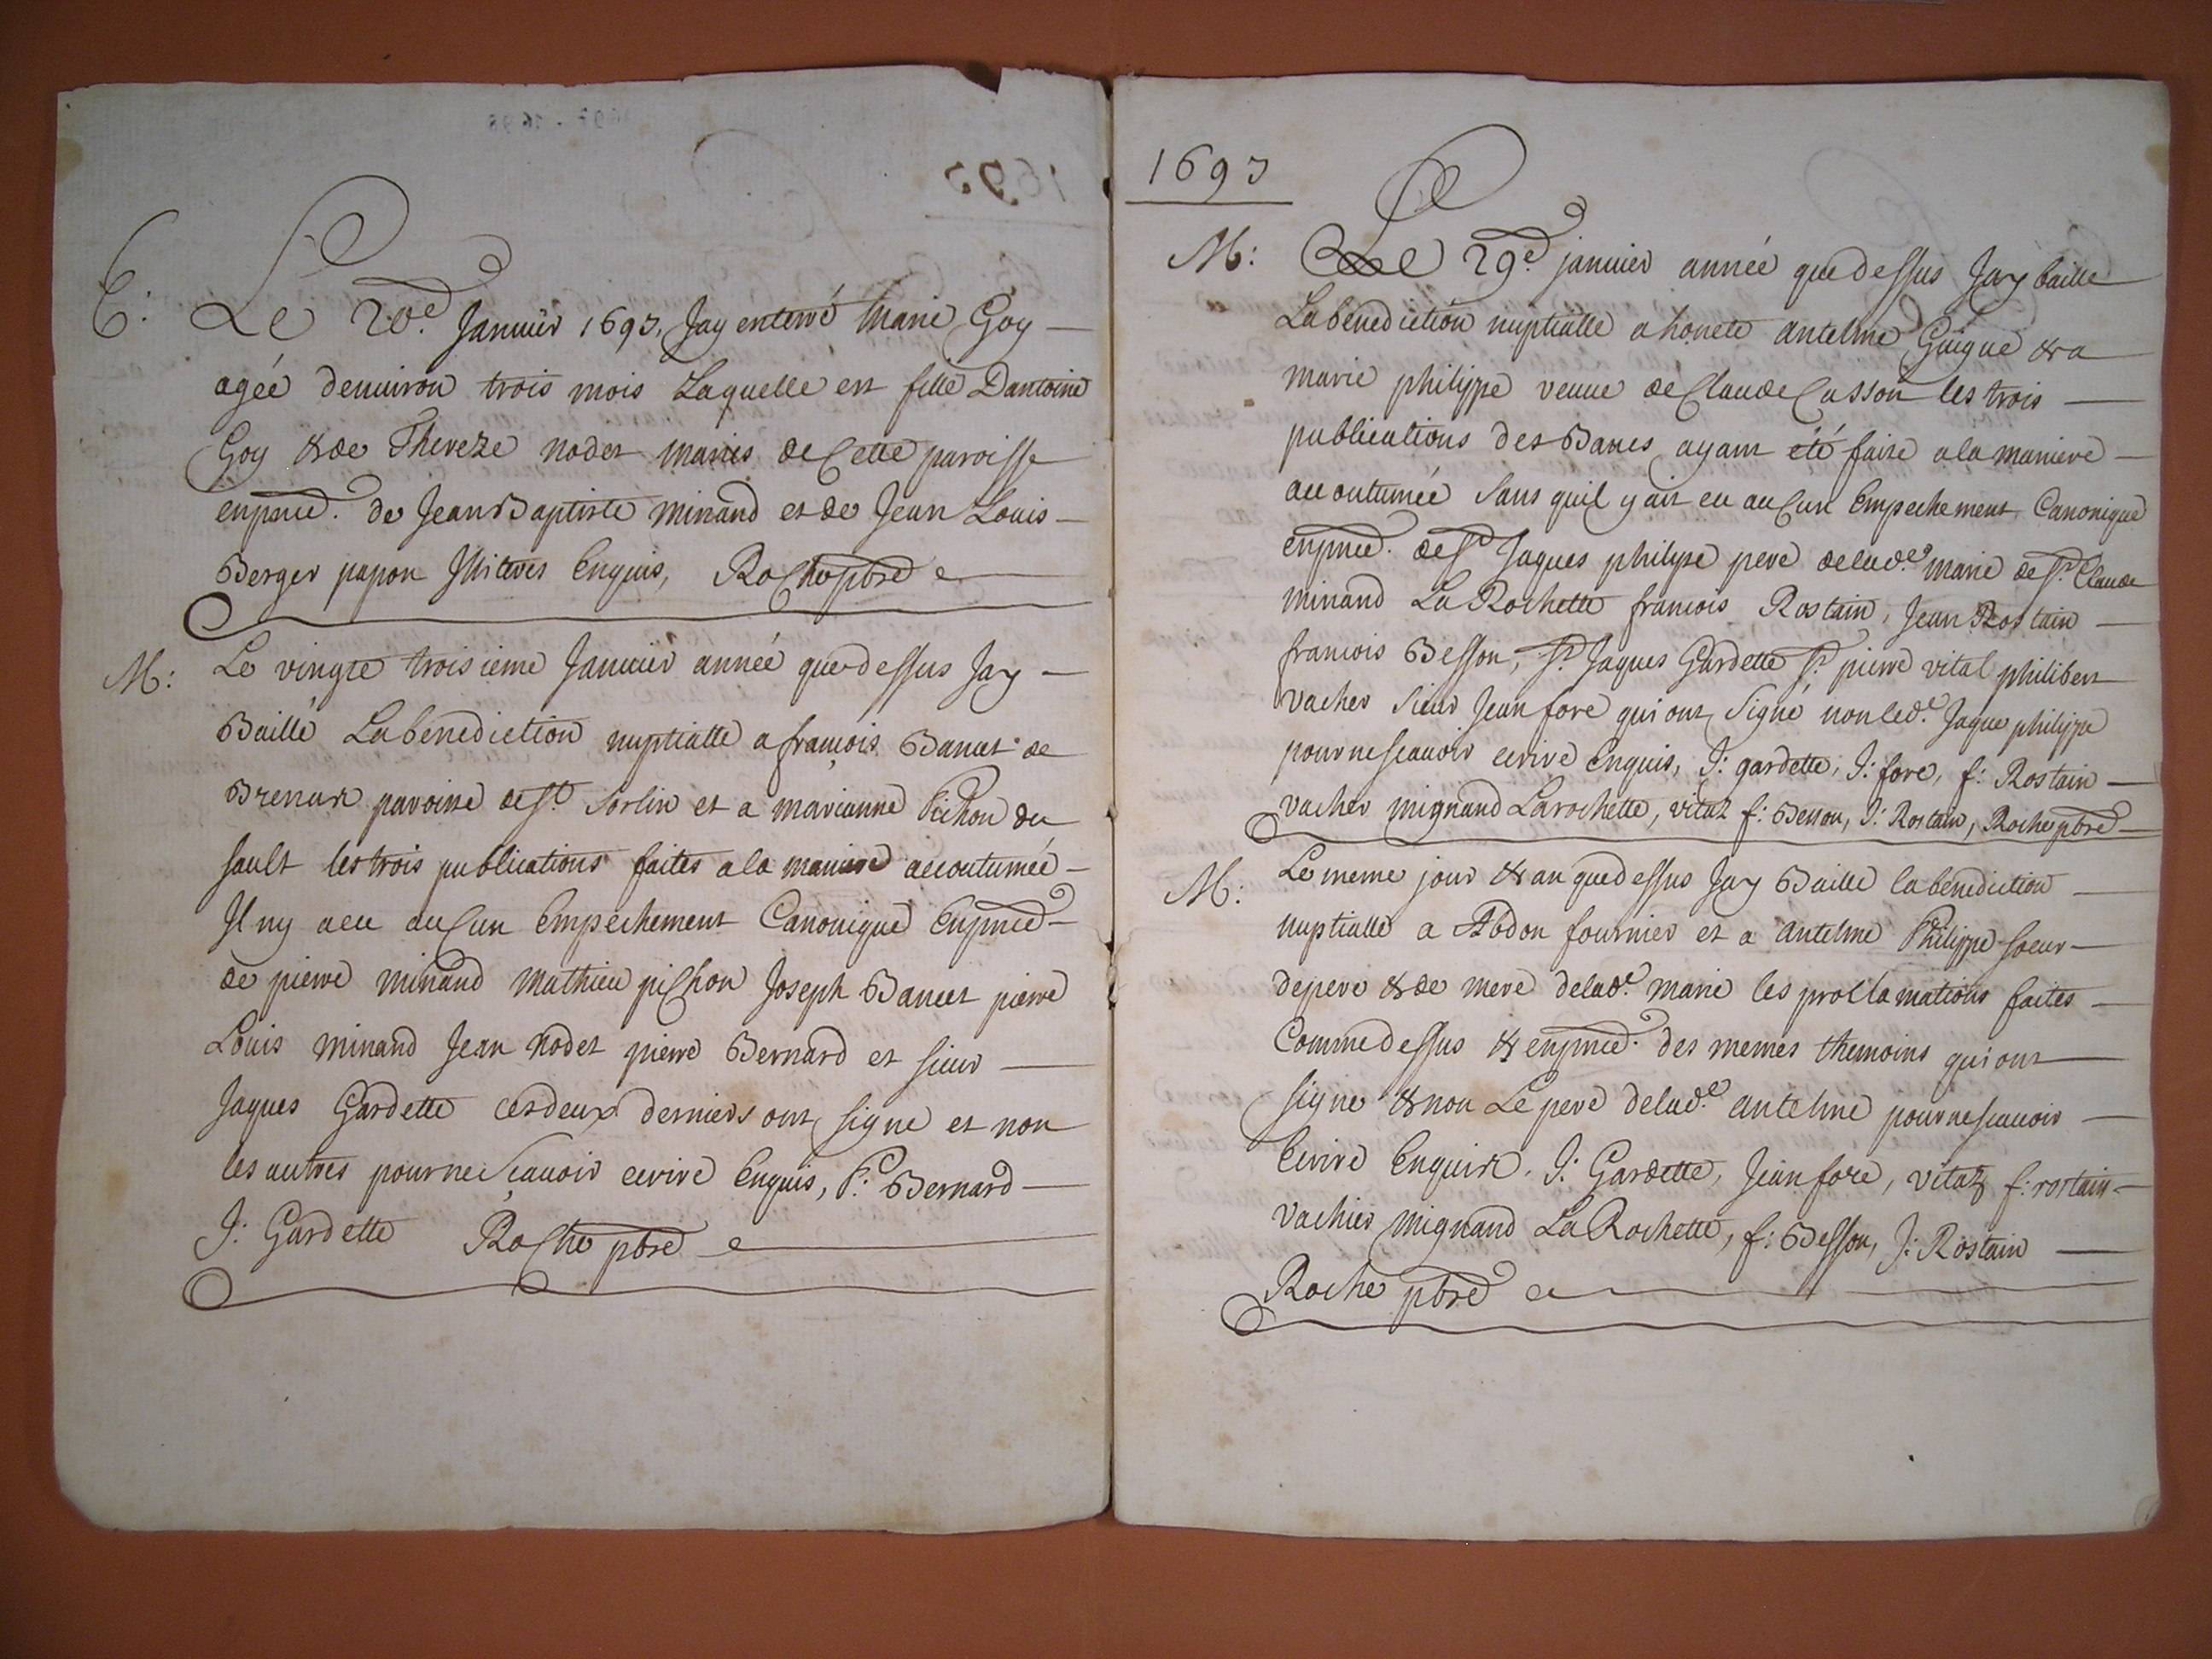 E: Le 20e. Januier 1693, Jay enterré Marie Goy
agée denuiron trois mois Laquelle est fille Dantoine
Goy & de Thereze nodet mariés de Cette paroisse
enpnce. de Jean Baptiste minand et de Jean Louis
Berger papon Jllitérés Enquis, Roche pbre
M: Le vingte troisieme Januier année que dessus Jay
Baillé La bénédiction nuptialle a francois Bancet de
Brenax paroisse de St. Sorlin et a marianne Pichon du
sault les trois publications faites a la manière accoutumée
Jl ny a eu auCun Empechement Canonique Enpnce
de pierre minand mathieu piChon Joseph Bancet pierre
Louis minand Jean nodet pierre Bernard et sieur
Jaques Gardette ces deux derniers ont signe et non
les autres pour ne sçauoir ecrire Enquis, P: Bernard
J: Gardette Roche pbre
1693
M: Le 29e. januier année que dessus Jay baille
La bénédiction nuptialle a honete antelme Guigue & a
marie philippe veuue de Claude Casson les trois
publications des Bancs ayant été faite a la maniere
accoutumée sans quil y ait eu auCun Empechement Canonique
enpnce. de sr Jaques philipe pere de lade. marie de sr. Claude
minand La Rochette francois Rostain, Jean Rostain
francois Besson, sr. Jaques Gardette sr. pierre vital philibert
vacher sieur Jean fore qui ont signé non led.e Jaque philippe
pour ne scauoir ecrire Enquis, J: gardette, J: fore, f: Rostain
vacher mignand Larochette, vital f: Besson, J: Rostain, Roche pbre
M: Le meme jour & an que dessus Jay Baille la bénédiction
nuptialle a Abdon fournier et a antelme Philippe soeur
de pere & de mere de lade. marie les proclamations faites
Comme dessus & enpnce. des memes themoins qui ont
signe & non Le pere de lade. antelme pour ne scauoir
Ecrire Enquis. J: Gardette, Jean fore, vital f: rostain
vachier mignand La Rochette, f: Besson, J: Rostain
Roche pbre